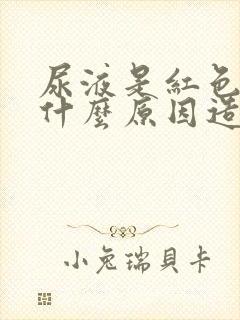 尿液是紅色
什麼原因造
小兔瑞貝卡